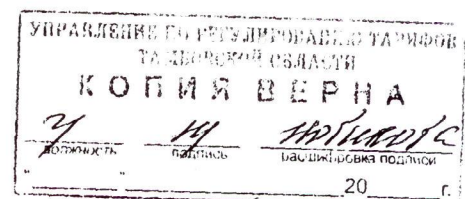 УПРАВЛЕНИЕ ПО РЕГУЛИРОВАНИЮ ТАРИФОВ
ТАМБОВСКОЙ ОБЛАСТИ
КОПИЯ ВЕРНА
должность подпись расшифровка подписи
"____"____________20____г.